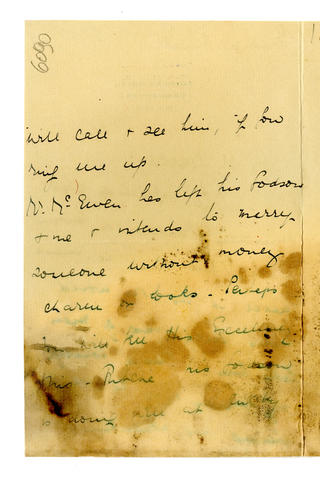 6090
will call & see him, if you
ring me up.
Mr. McEwen has left his Godson
& me & intends to marry
someone without money
charm or looks - Perhaps
you will tell His Excellency
this - his Godson
is at